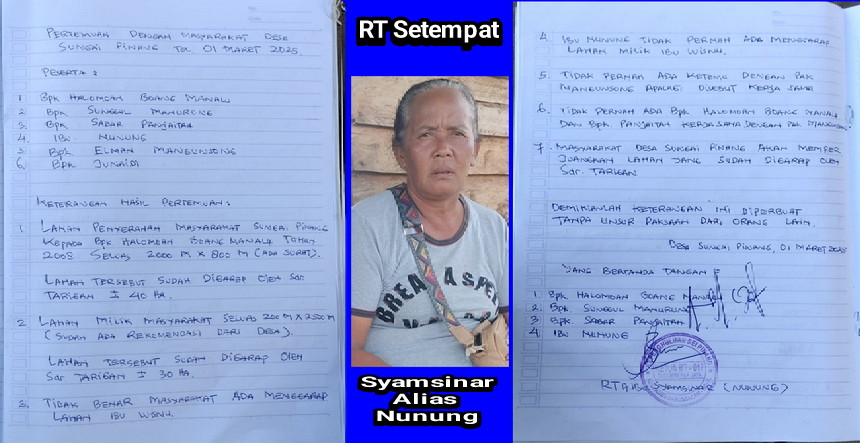 PERTEMUAN DENGAN MASYARAKAT DESA
SUNGAI PINANG TGL 01 MARET 2025.
PESERTA :
1 Bpk HALOMOAN BOANG MANALU
2 Bpk SUNGGUL MANURUNG
3. Bpk SABAR PANJAITAN
4 IBU NUNUNG
5 Bpk ELMAN MANGUNSONG
6. Bpk JUNAIDI
KETERANGAN HASIL PERTEMUAN :
1 LAHAN PENYERAHAN MASYARAKAT SUNGAI PINANG
KEPADA Bpk HALOMOAN BOANG MANALU TAHUN
2008 SELUAS 2000 M X 800 M (ADA SURAT).
LAHAN TERSEBUT SUDAH DIGARAP OLEH Sdr
TARIGAN ± 40 HA.
2 LAHAN MILIK MASYARAKAT SELUAS 200 M X 250 M
(SUDAH ADA REKOMENDASI DARI DESA).
LAHAN TERSEBUT SUDAH DIGARAP OLEH
Sdr TARIGAN ± 30 HA.
3. TIDAK BENAR MASYARAKAT ADA MENGGARAP
LAHAN IBU WISNU.
RT Setempat
Syamsinar
Alias
Nunung
4. IBU NUNUNG TIDAK PERNAH ADA MENGGARAP
LAHAN MILIK IBU WISNU.
5. TIDAK PERNAH ADA KETEMU DENGAN PAK
MANGUNSONG APALAGI DISEBUT KERJA SAMA
6. TIDAK PERNAH ADA Bpk HALOMOAN BOANG MANALU
DAN Bpk. PANJAITAN KERJA SAMA DENGAN PAK MANGUNSONG
7. MASYARAKAT DESA SUNGAI PINANG AKAN MEMPER
JUANGKAN LAHAN YANG SUDAH DIGARAP OLEH
Sdr. TARIGAN.
DEMIKIANLAH KETERANGAN INI DIPERBUAT
TANPA UNSUR PAKSAAN DARI ORANG LAIN.
DESA SUNGAI PINANG, 01 MARET 2025
YANG BERTANDA TANGAN
1. Bpk HALOMOAN BOANG MANALU
2. Bpk SUNGGUL MANURUNG
3 Bpk. SABAR PANJAITAN
4. IBU NUNUNG
SYAMSINAR (NUNUNG)